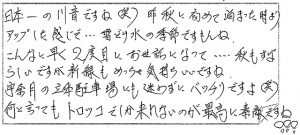 日本一の川音ですね(笑) 昨秋に初めて泊まった時より
アップした感じで… 雪どり水の季節ですもんね
こんなに早く2度目にお世話になって… 秋もすばらしいですが新緑もめっちゃ気持ちいいですね。
宇奈月の立体駐車場にも迷わずにバッチリですよ(笑)
何と言ってもトロッコでしか来れないのが最高に素敵ですね